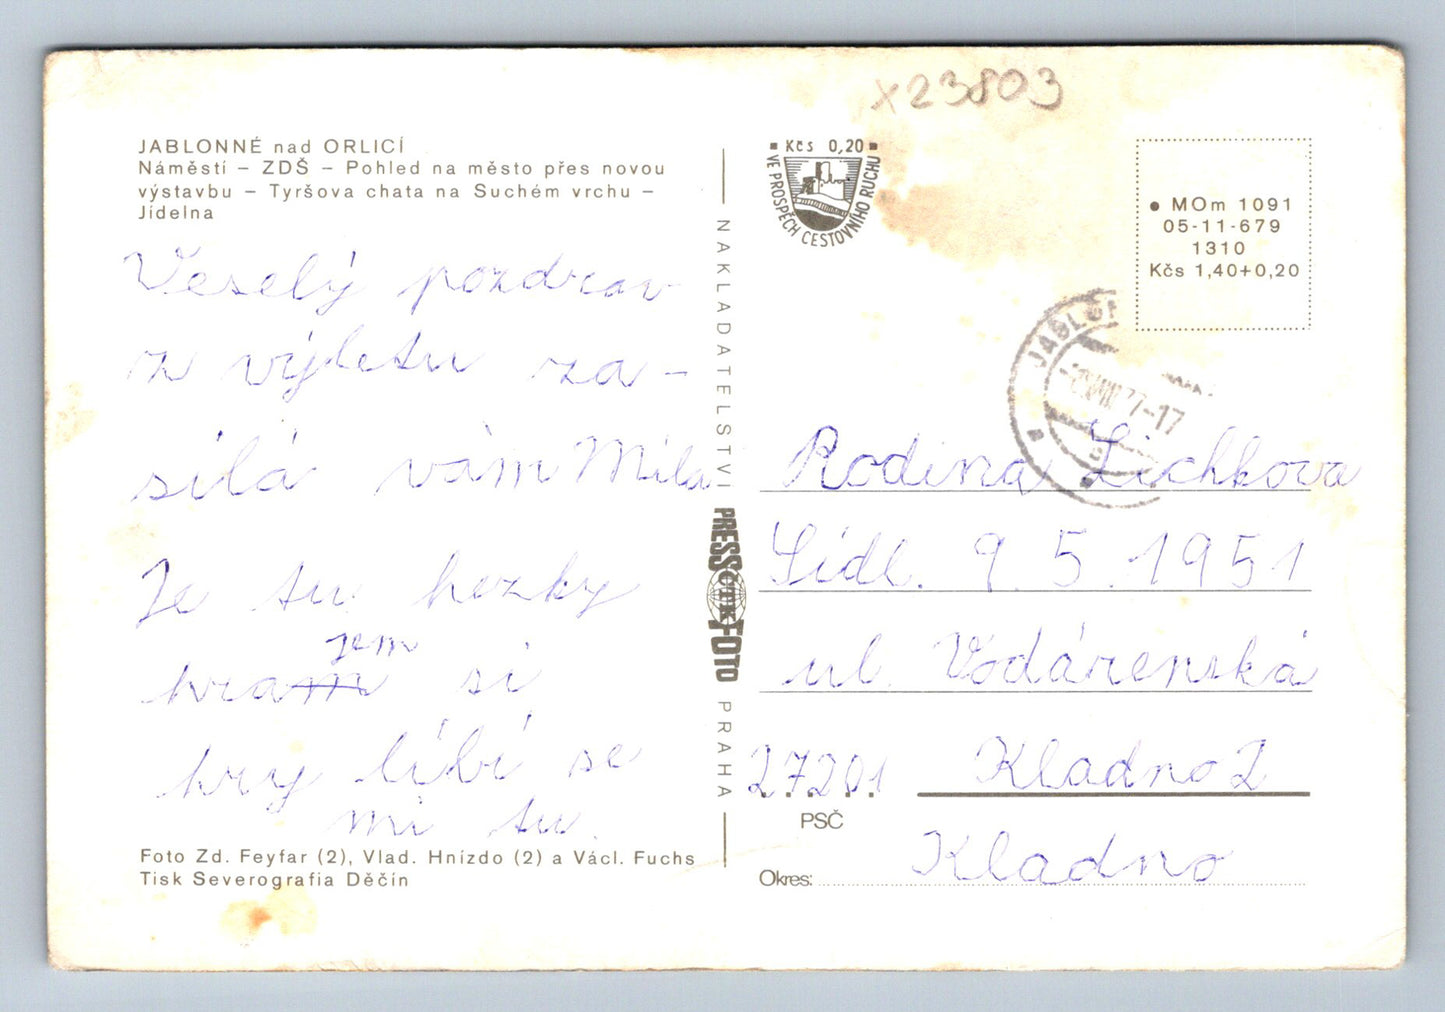 x23803
JABLONNÉ nad ORLICÍ
Náměstí – ZDŠ – Pohled na město přes novou
výstavbu – Tyršova chata na Suchém vrchu –
Jídelna
Veselý pozdrav
z výletu za-
silá vám Mila
Je tu hezky
jem
hram si
hry líbí se
mi tu.
Foto Zd. Feyfar (2), Vlad. Hnízdo (2) a Václ. Fuchs
Tisk Severografia Děčín
NAKLADATELSTVÍ
PRESSFOTO
ČTK
PRAHA
Kčs 0,20
VE PROSPĚCH CESTOVNÍHO RUCHU
MOm 1091
05-11-679
1310
Kčs 1,40+0,20
JABLO
77-17
Rodina Lichkova
Sídl. 9. 5. 1951
ul. Vodárenská
27201 Kladno 2
PSČ
Okres: Kladno